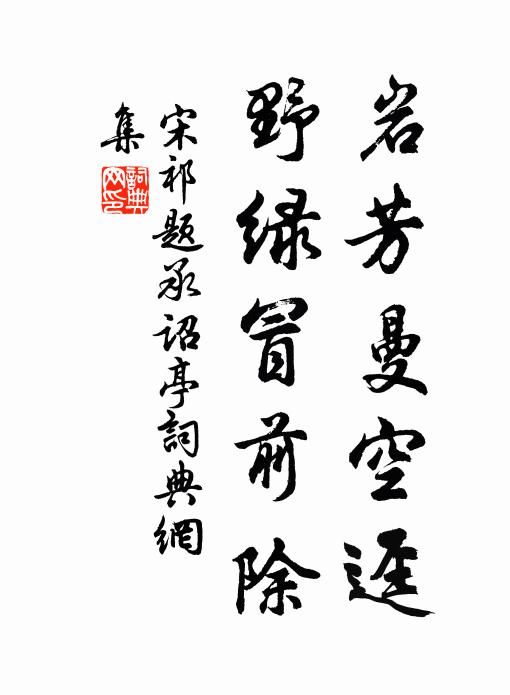 岩芳曼空逕
野绿冒前除
宋祁题承诏亭詞典網
集
詞典网印